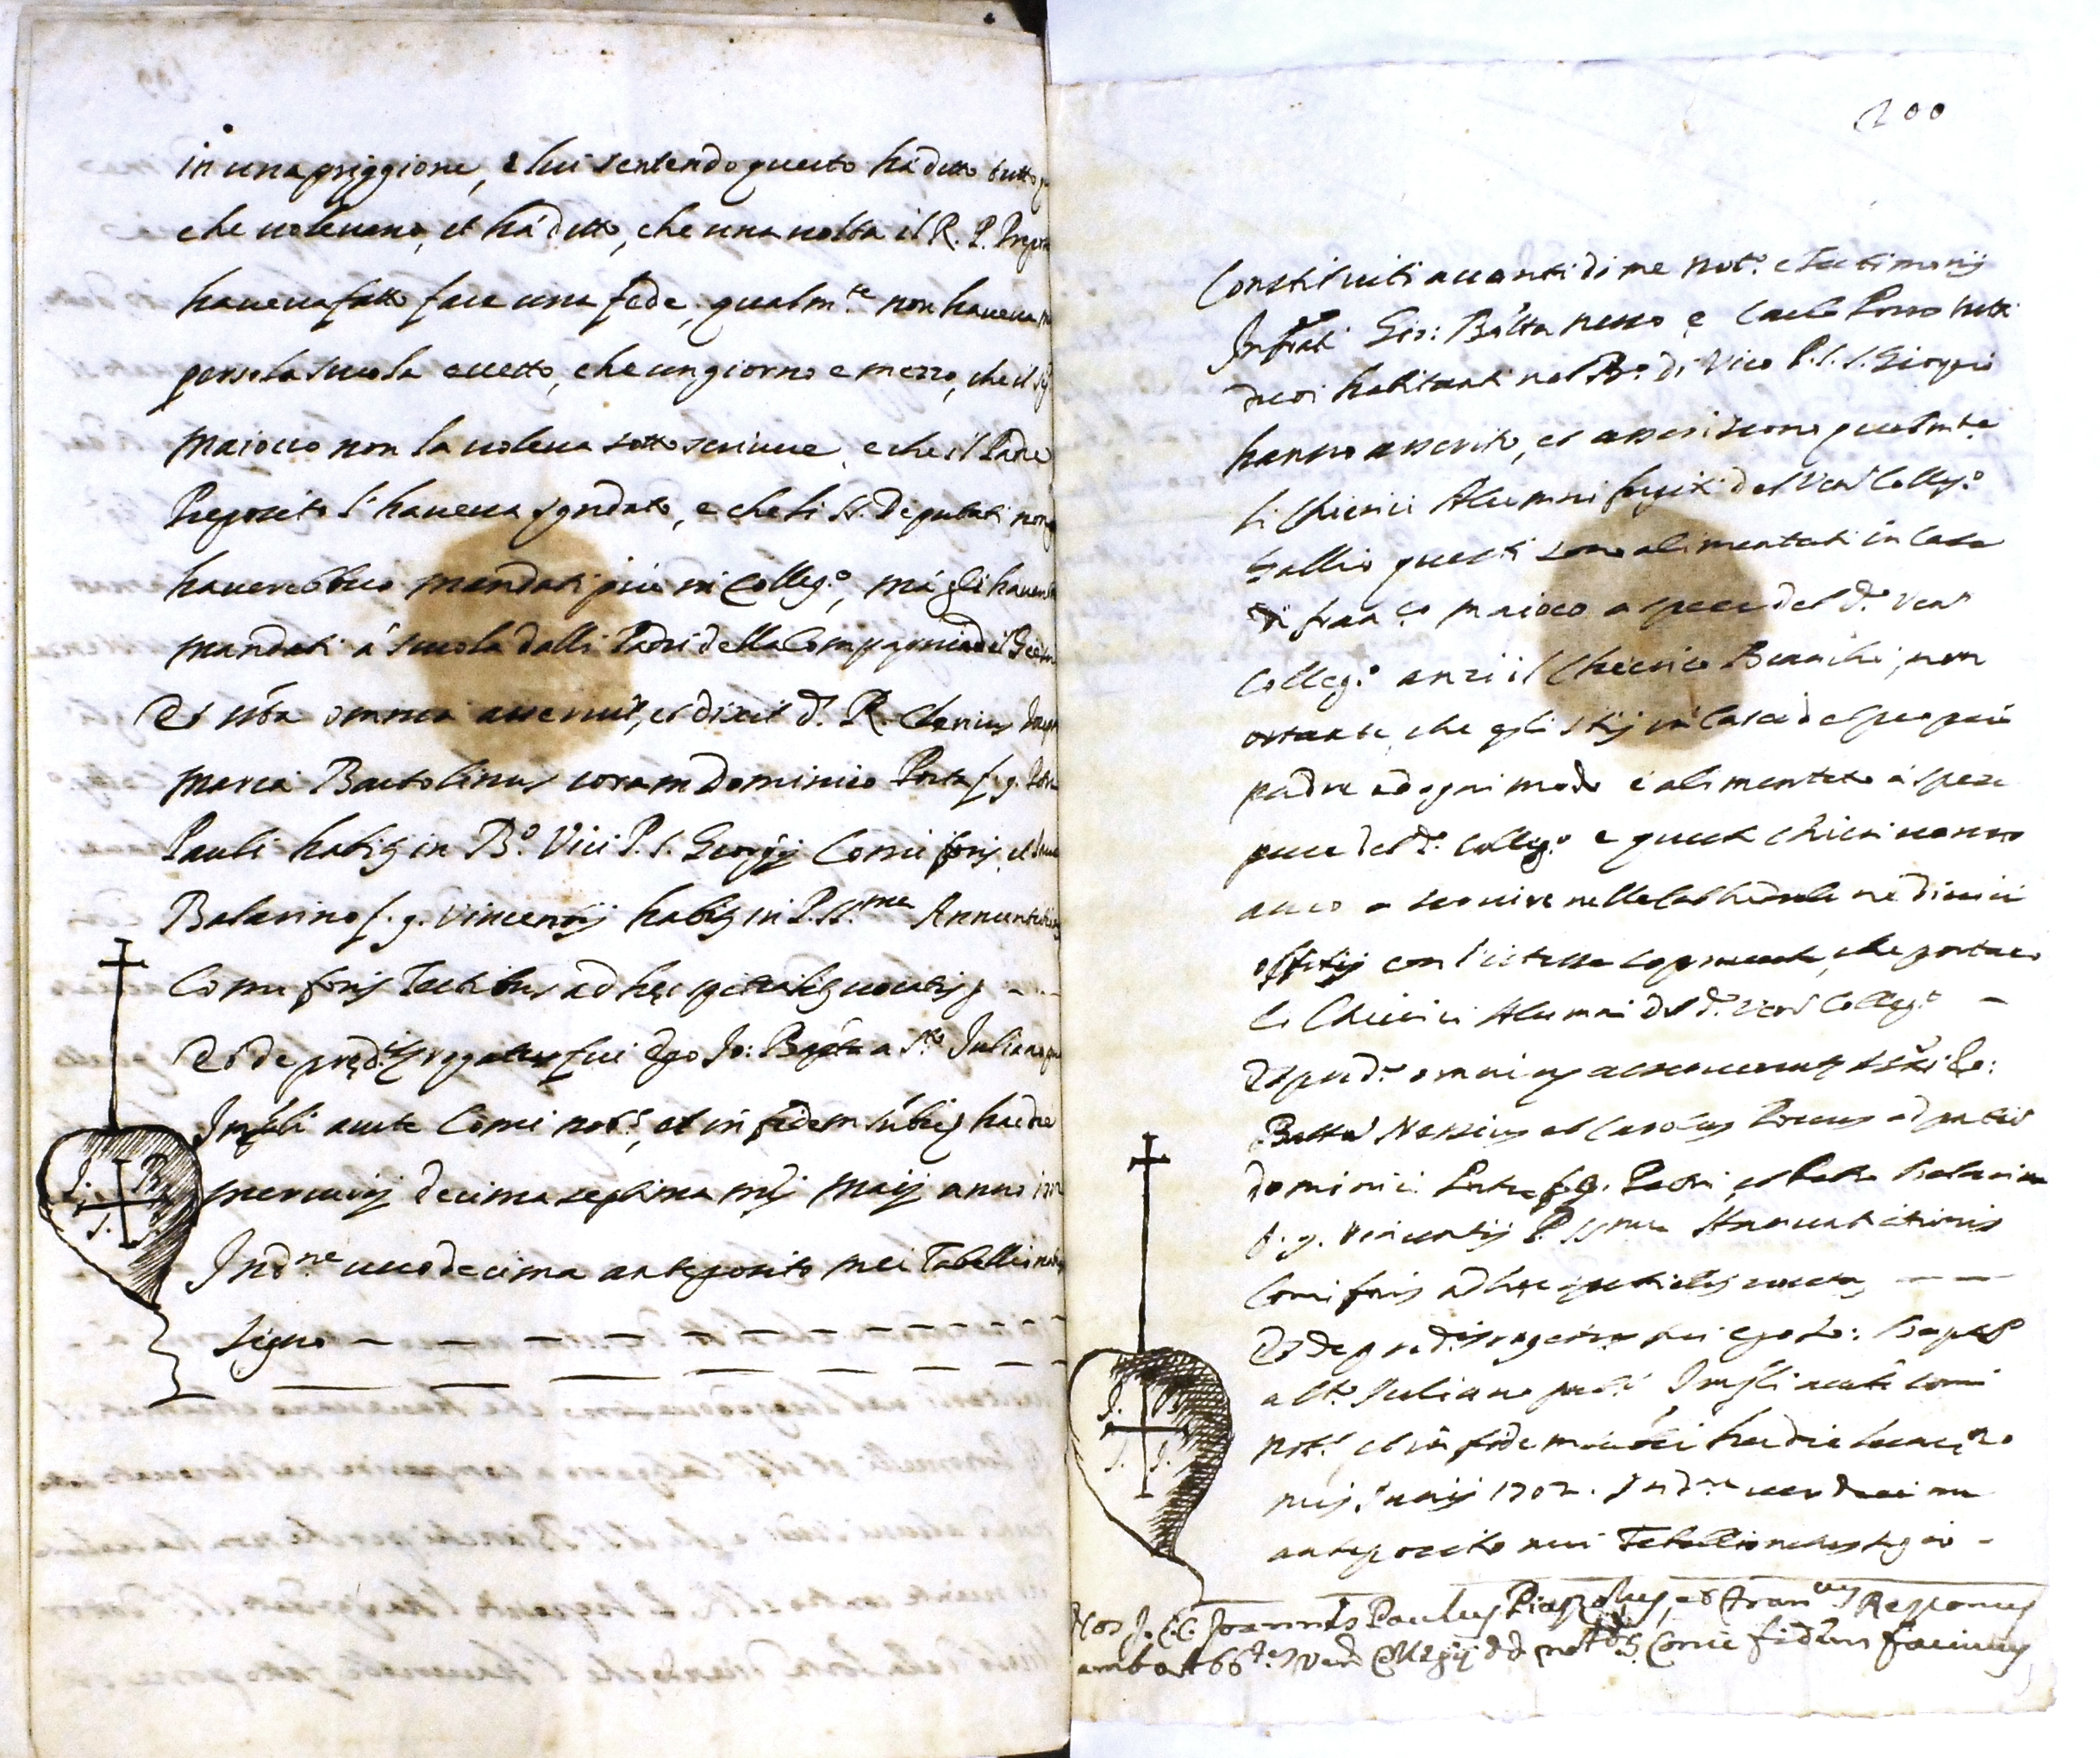 in una priggione, e lui sentendo questo hà detto tutto
che voleuano, et hà detto, che una uolta il R. P. Preposito
haueua fatto fare una fede, qualm.te non haueua
perso la scuola eccetto, che un giorno e mezzo, che il
Maiocco non la uoleua sotto scriuere, e che il Padre
Preposito l'haueua sgridato, e che li SS. Deputati non
hauerebbero mandati più in Colleg.o, mà gli hauerebbero
mandati à scuola dalli Padri della Compagnia del Giesu
Et ista omnia asseruit, et dixit d.s R. Clericus
Maria Bartolinus coram Dominico Porta f. q.
Pauli habit. in B.o Vici P. S. Georgij Comi foris, et
Balarino f. q. Vincentij habit. in P. SS.mae Annuntiationis
Comi foris Testibus ad hęc specialit. uocatis
Et de pręd.is rogatus fui Ego Jo: Bapta a S.to Juliano
Imp.li aucte Comi not.s, et in fidem subsi hac die
mercurij decima septima mensis Maij anno 1702
Ind.ne undecima anteposito mei Tabellionatus
signo
J. B.
S. J.
200
Constituiti auanti di me Not.o e Testimonij
Infrati Gio: Batta Nesso e Carlo Porro tutti
duoi habitanti nel B.o di Vico P. S. S. Giorgio
hanno asserito, et asseriscono qualmte
li Chierici Alumni fugiti dal Ven Colleg.o
Gallio questi sono alimentati in Casa
di fran.co Maioco a spese del d.o Ven
Colleg.o anzi il Chierico Bianchi, non
ostante, che egli stij in Casa del proprio
padre ad ogni modo è alimentato à spese
pure del d.o Colleg.o e questi Chierici uanno
anco a seruire nella Cathedrale ne diuini
offitij con l'istessa che portano
li Chierici Alumni del d.o Ven Colleg.o
Et pred.a omnia asseruerunt Jo:
Batta Nessus et Carolus Porrus
Dominici Porta f. q. Pauli, et Balarino
f. q. Vincentij P. SS.mae Annuntiationis
Comi foris ad hęc specialit. uocatis
Et de pred.is rogatus fui ego Jo: Bapta
a S.to Juliano Imp.li aucte Comi
not.s et in fidem subsi hac die
mensis Junij 1702. Ind.ne undecima
anteposito mei Tabellionatus signo
J. B.
S. J.
Nos J. C. C. Joannes Paulus et Fran.cus Rezzonicus
ambo Abb.tes Ven Collegij D D not.rum Comi fidem facimus